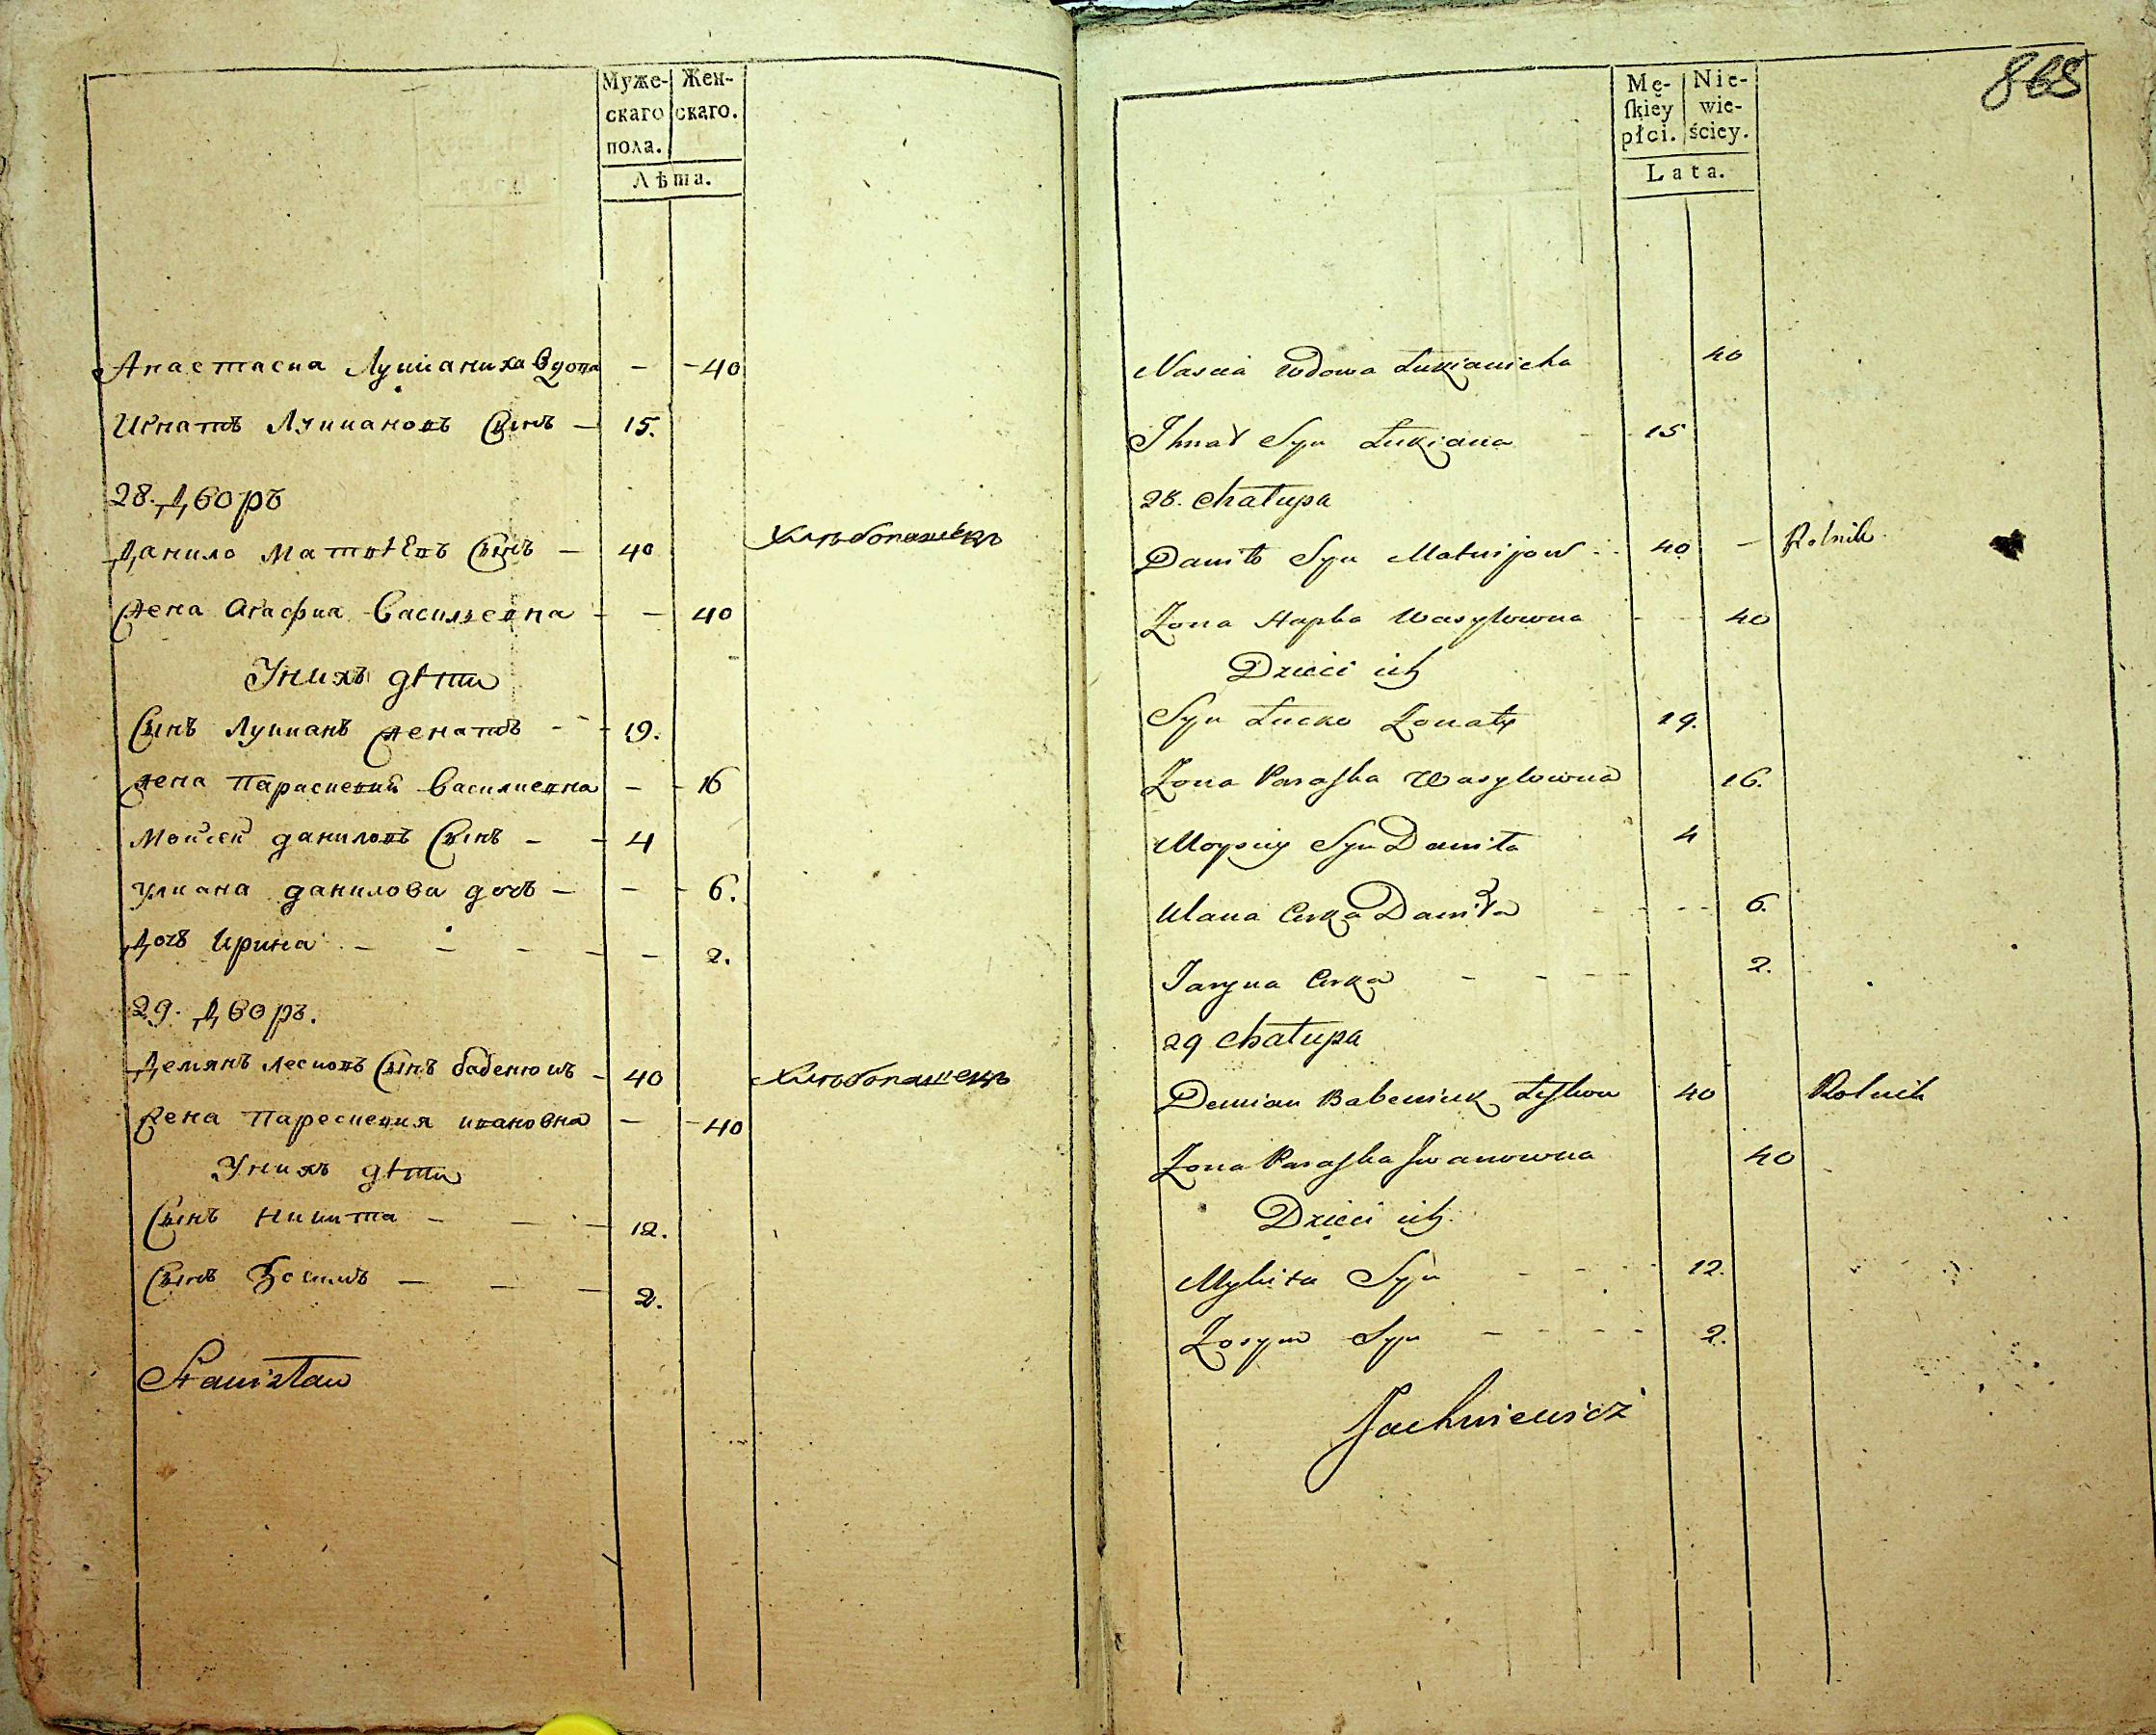 Муже- Жен-
скаго скаго.
пола.
Лѣта.
Анастасиа Лукианиха Вдова — — 40
Игнатъ Лукиановъ Сынъ — 15.
28. Дворъ
Данило Матвѣевъ Сынъ — 40 Хлѣбопашецъ
Жена Агафиа Васильевна — — 40
У нихъ дѣти
Сынъ Лукианъ Женатъ - - 19.
Жена Параскевия Василиевна — - 16
Мойсей даниловъ Сынъ — - 4
Улиана данилова дочъ — — - 6.
Дочъ Ирина — — — — — 2.
29. Дворъ.
Демянъ лесковъ Сынъ бабенюкъ - 40 Хлѣбопашецъ
Жена Парескевия ивановна — - 40
У нихъ дѣти
Сынъ Никита — — — 12.
Сынъ Зосимъ — — — 2.
Stanisław
868
Mę- Nie-
ſkiey wie-
płci. ściey.
Lata.
Nascia wdowa Łukianicha 40
Ihnat Syn Łukiana - 15
28. Chałupa
Daniło Syn Matwijow 40 — Rolnik
Żona Hapka Wasylowna - - - 40
Dzieci ich
Syn Łucko Żonaty 19.
Żona Paraſka Wasylowna 16.
Moysiy Syn Daniła 4
Ulana Corka Daniła - - - - 6.
Jaryna Corka - - - - 2.
29 Chałupa
Demian Babeniuk Łeſkow 40 Rolnik
Żona Paraſka Iwanowna 40
Dzieci ich.
Mykita Syn - - - 12.
Zosym Syn - - - - 2.
Jachniewicz